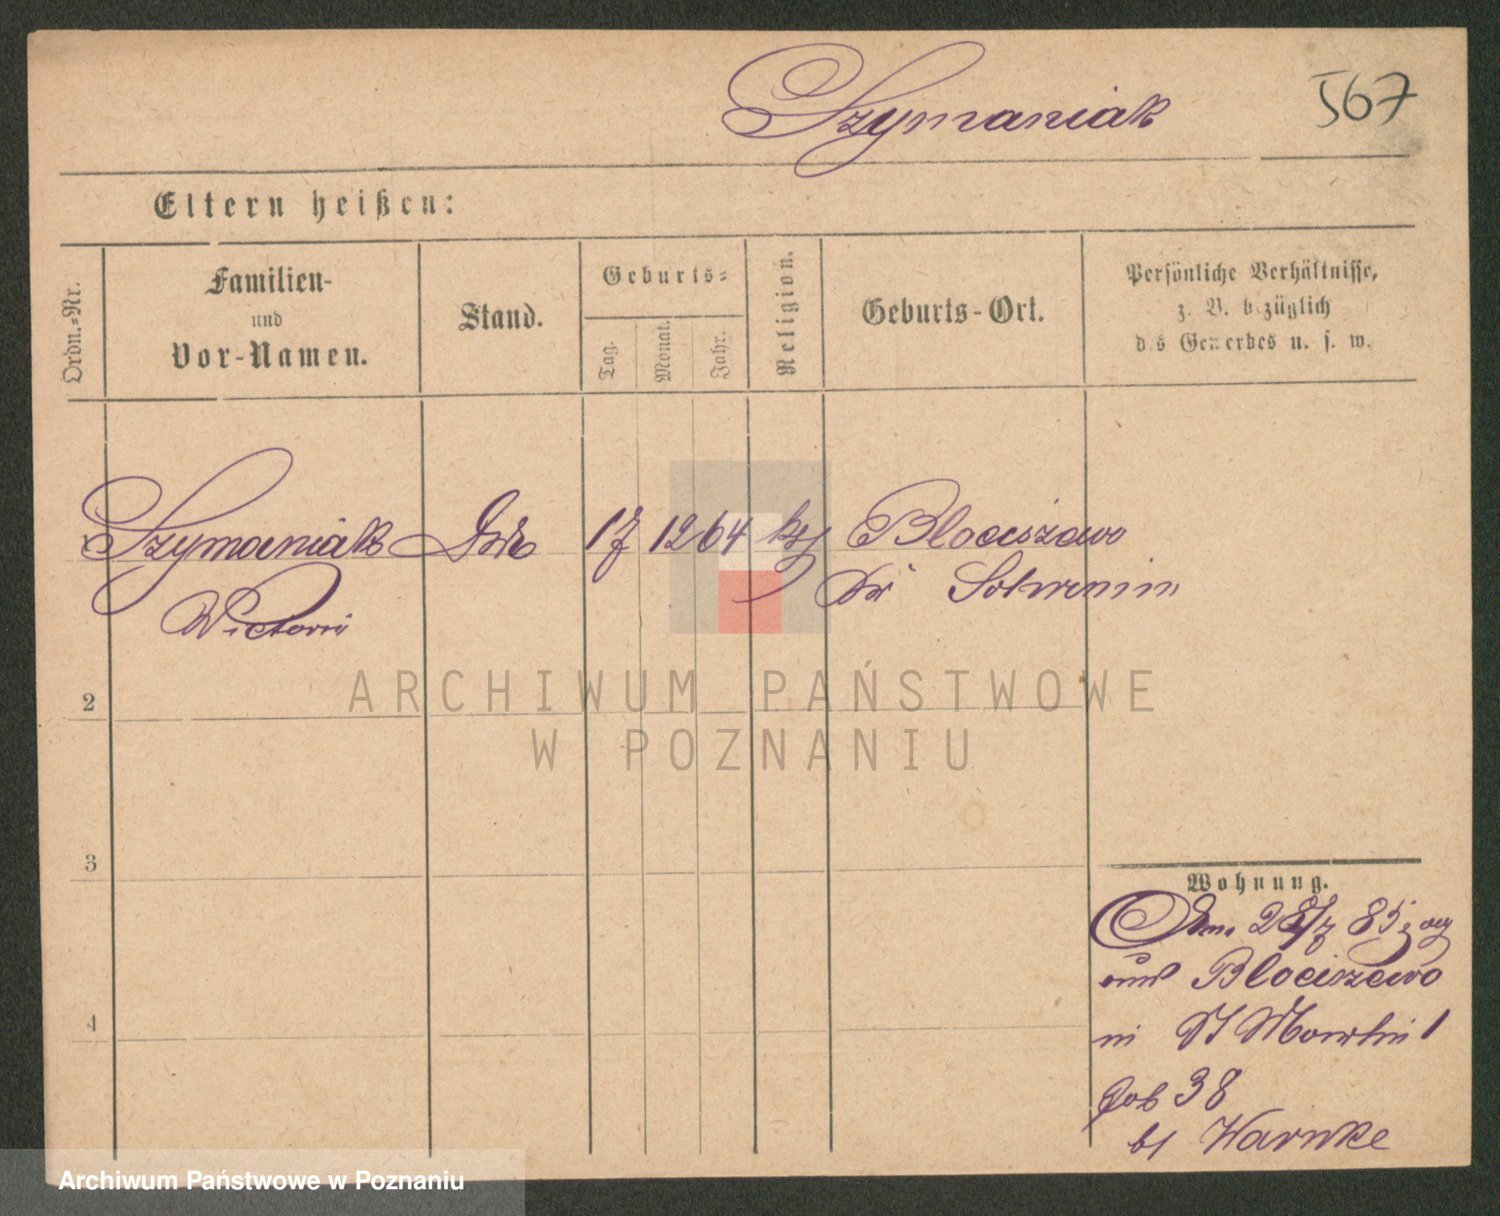 Szymaniak
567
Eltern heißen:
Ordn.-Nr.
Familien-
und
Vor-Namen.
Stand.
Geburts-
Tag.
Monat.
Jahr.
Religion.
Geburts-Ort.
Persönliche Verhältnisse,
z. B. bezüglich
des Gewerbes u. s. w.
1 Szymaniak 17 12 64 Blociszewo
Victoria
Kr Schrimm
2
3
4
Wohnung.
28/7 85 zog
aus Blociszewo
in St Martin 1
Geb 38
b/ Warnke
ARCHIWUM PAŃSTWOWE
W POZNANIU
Archiwum Państwowe w Poznaniu